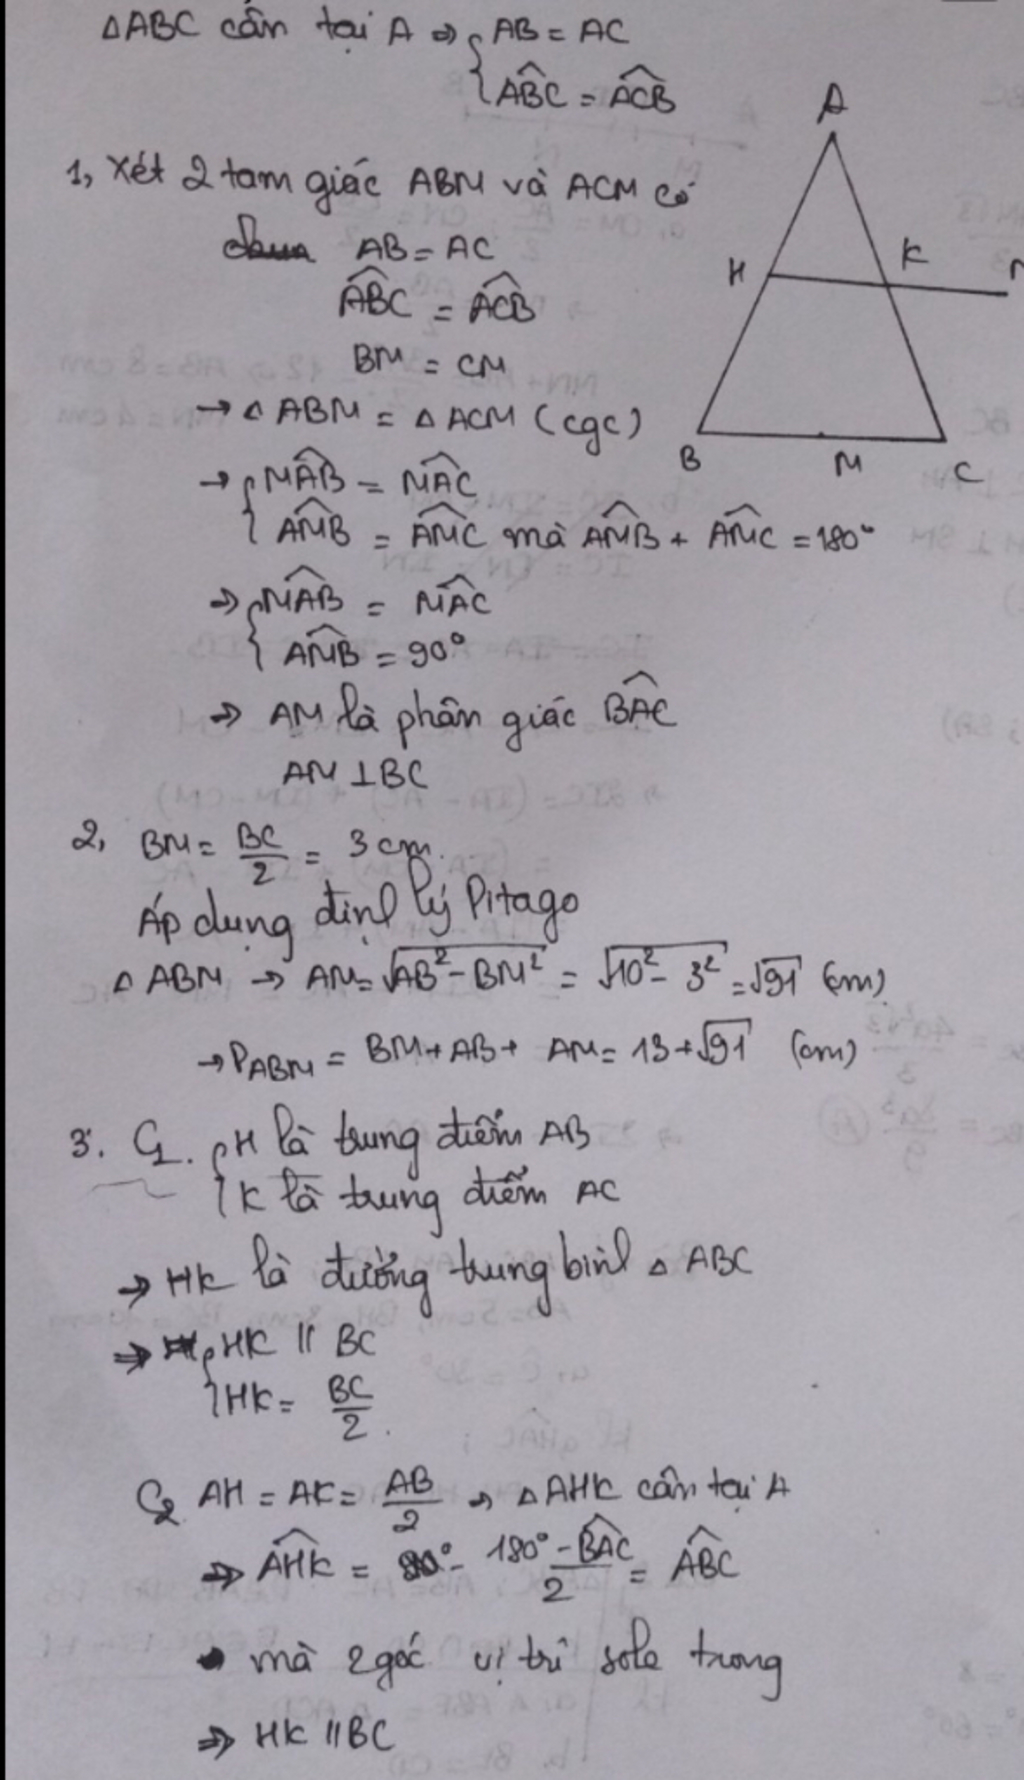 △ABC cân tại A ⇒ { AB = AC
ABC^ = ACB^
A
1, Xét 2 tam giác ABM và ACM có
AB = AC
H K
ABC^ = ACB^
BM = CM
→ △ABM = △ACM (cgc)
B M C
→ { MAB^ = MAC^
AMB^ = AMC^ mà AMB^ + AMC^ = 180°
⇒ { MAB^ = MAC^
AMB^ = 90°
⇒ AM là phân giác BAC^
AM ⊥ BC
2, BM = BC/2 = 3 cm.
Áp dụng định lý Pitago
△ ABM → AM = √(AB² - BM²) = √(10² - 3²) = √91 (cm)
→ P_ABM = BM + AB + AM = 13 + √91 (cm)
3. C1. { H là trung điểm AB
K là trung điểm AC
→ HK là đường trung bình △ ABC
⇒ { HK // BC
HK = BC/2.
C2 AH = AK = AB/2 → △AHK cân tại A
⇒ AHK^ = (180° - BAC^)/2 = ABC^
mà 2 góc vị trí sole trong
⇒ HK // BC